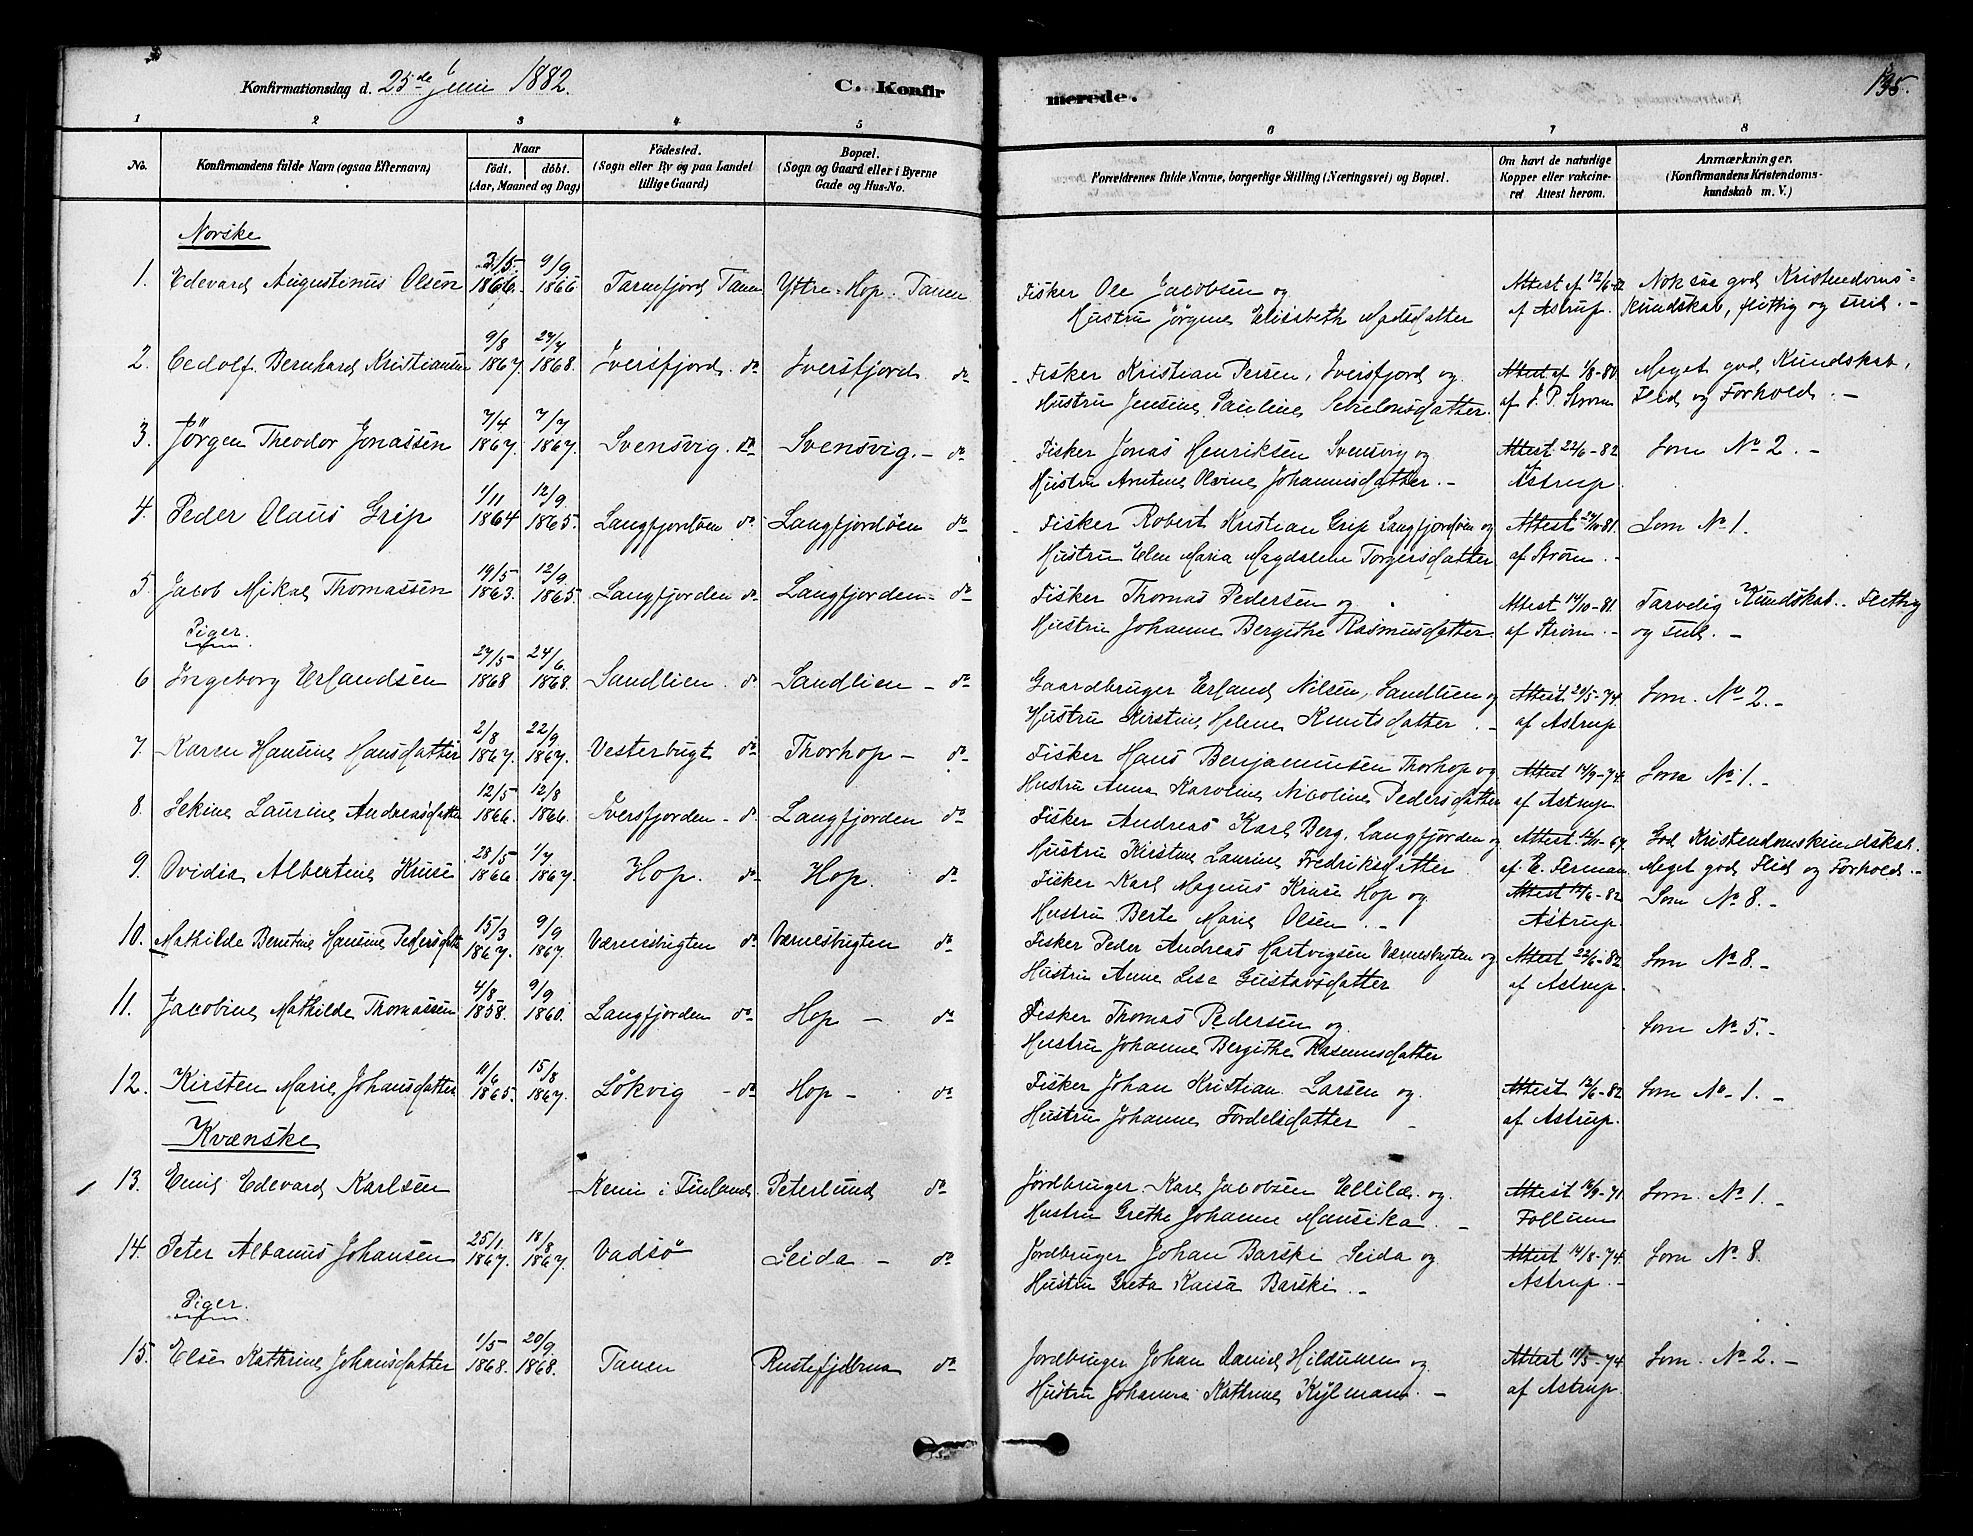 Konfirmationsdag d. 25de Juni 1882.
C. Konfir
merede.
195.
1 2 3 4 5 6 7 8
No.
Konfirmandens fulde Navn (ogsaa Efternavn)
Naar
födt. döbt.
(Aar, Maaned og Dag)
Födested.
(Sogn eller By og paa Landet
tillige Gaard)
Bopæl.
(Sogn og Gaard eller i Byerne
Gade og Hus-No.
Forældrenes fulde Navne, borgerlige Stilling (Næringsvei) og Bopæl.
Om havt de naturlige
Kopper eller vakcine-
ret Attest herom.
Anmærkninger.
(Konfirmandens Kristendoms-
kundskab m. V.)
Norske
1. Edevard Augustinus Olsen 1866. 9/9 1866 Tanafjord Tanen Yttre-Hop. Tanen
Fisker Ole Jacobsen og Attest af 12/6-82 Noksaa god Kristendoms-
Hustru Jørgine Elisabeth Madsdatter af Astrup. kundskab, flittig og stil. -
2. Bernhard Kristiansen 9/8 1867. 1868. Iversfjord. do Iversfjord. do
Fisker Kristian Persen, Iversfjord og Attest af 1/8-80. Meget god Kundskab,
Hustru Jensine Pauline Sebulonsdatter. af J. P. Strøm Flid og Forhold. -
3. Jörgen Theodor Jonassen 7/4 1867. 7/7 1867. Svensvig. do Svensvig. - do
Fisker Jonas Henriksen Svensvig og Attest 22/6-82 Som No 2. -
Hustru Arntine Olvine Johannisdatter. - Astrup
4. Peder Olaus Grip 1/11 1864 12/9 1865. Langfjordøen do. Langfjordöen do
Fisker Robert Kristian Grip Langfjordøen og Attest -81. Som No 1.
Hustru Elen Maria Magdalene Torgersdatter af Strøm. -
5. Jacob Mikal Thomassen 19/5 1863. 12/9 1865 Langfjorden do Langfjorden - do
Fisker Thomas Pedersen og Attest 14/10-81. Tarvelig Kundskab. Flittig
Hustru Johanne Bergithe Rasmusdatter. af Strøm. - og stil. -
Piger.
6 Ingeborg Erlandsen 27/5 1868 24/6 1868. Sandlien. do Sandlien - do
Gaardbruger Erland Nilsen, Sandlien og Attest 20/5-74. Som. No 2. -
Hustru Kirstine Helene Knutsdatter. - af Astrup
7. Karen Hansine Hansdatter 2/8 1867. 22/9 1867. Vesterbugt do Thorhop - do
Fisker Hans Benjaminsen Thorhop og Attest 14/9-74. Som No 1. -
Hustru Anna Karoline Nicoline Pedersdatter af Astrup
8. Sekine Laurine Andreasdatter 12/5 1866. 12/8 1866. Iversfjorden - do Langfjorden do
Fisker Andreas Karl Berg, Langfjorden og Attest. -67. God Kristendomskundskab.
Hustru Kirstine Laurine Fredriksdatter af E. Ferman Meget god Flid og Forhold. -
9. Ovidia Albertine Kruse 28/5 1866 1/7 1867. Hop. do Hop. do
Fisker Karl Magnus Kruse Hop og Attest 12/6-82 Som No 8. -
Hustru Berte Marie Olsen. - Astrup.
10. Mathilde Berntine Hansine Pedersdatter 15/3 1867. 9/9 1867. Værnesbugten do Værnesbugten do
Fisker Peder Andreas Hartvigsen Værnesbugten og Attest 22/6-82 Som No 8. -
Hustru Anne Lisa Gustavsdatter af Astrup.
11. Jacobine Mathilde Thomassen 4/8 1858. 9/9 1860. Langfjorden do Hop - do
Fisker Thomas Pedersen og. Som No 5. -
Hustru Johanne Bergithe Rasmusdatter
12. Kirsten Marie Johansdatter 11/6 1865. 15/8 1867. Lökvig - do Hop - do
Fisker Johan Kristian Larsen og. Attest 12/6-82 Som No 1. -
Hustru Johanne Fordelsdatter - af Astrup.
Kvænske
13. Emil Edevard Karlsen Kemi i Finland. Peterlund do
Jordbruger. Karl Jacobsen og. Attest -71. Som. No 1. -
Hustru Grethe Johanne Mansika. - Follum
14. Peter Albanus Johansen 25/1 1867. 18/8 1867. Vadsø Seida - do
Jordbruger Johan Barski Seida og Attest 14/8-74. Som No 8.
Hustru Greta Kaisa Barski. - Astrup. -
Piger.
15. Else Kathrine Johansdatter 1/5 1868. 20/9. 1868. Tanen Rustefjelma do
Jordbruger Johan Daniel og Attest 11/5-74. Som. No 2. -
Hustru Johanna Kathrine Kylmann. - af Astrup.